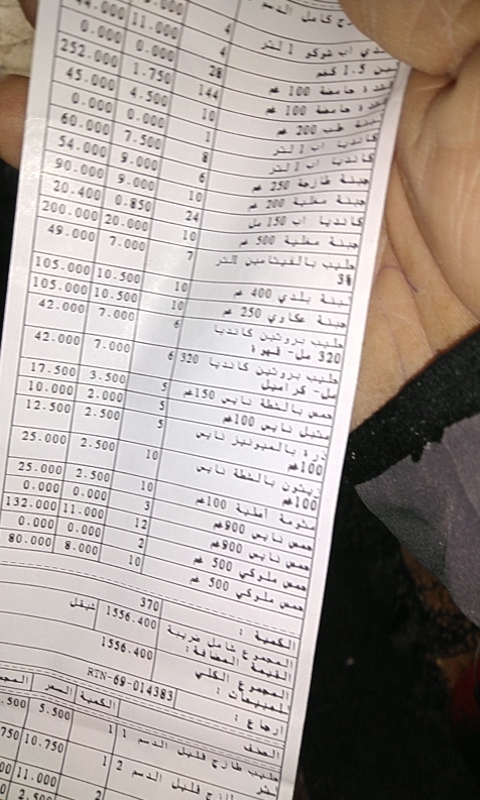 ج كامل الدسم
4 11.000 44.000
ندي اب شوكو 1 لتر 4 0.000 0.000
بن 1.5 كجم 28
حامضة 100 غم 144 1.750 252.000
حامضة 100 غم 10 4.500 45.000
200 غم 1 0.000 0.000
كانديا اب 1 لتر 8 7.500 60.000
كانديا اب 1 لتر 6 9.000 54.000
جبنة طازجة 250 غم 10 9.000 90.000
جبنة مغلية 200 غم 24 0.850 20.400
كانديا اب 150 مل 10 20.000 200.000
جبنة مغلية 500 غم 7 7.000 49.000
حليب بالفيتامين لتر
3%
لبنة بلدي 400 غم 10 10.500 105.000
جبنة عكاوي 250 غم 10 10.500 105.000
حليب بروتين كانديا 6 7.000 42.000
320 مل- قهوة
حليب بروتين كانديا 320 6 7.000 42.000
مل- كراميل
حمص بالشطة نايس 150غم 5 3.500 17.500
متبل نايس 100غم 5 2.000 10.000
ذرة بالميونيز نايس 5 2.500 12.500
100غم
زيتون بالشطة نايس 10 2.500 25.000
100غم
مثومة أصلية 100غم 10 2.500 25.000
حمص نايس 900غم 3 0.000 0.000
حمص نايس 900غم 12 11.000 132.000
حمص ملوكي 500 غم 2 0.000 0.000
حمص ملوكي 500 غم 10 8.000 80.000
الكمية : 370
المجموع شامل ضريبة 1556.400 شيقل
القيمة المضافة:
المجموع الكلي 1556.400
للمبيعات :
ارجاع : RTN-69-014383
الصنف الكمية السعر المجم
حليب طازج قليل الدسم 1 1 5.500 .500
لتر
حليب طازج قليل الدسم 2 1 10.750 750
11.000
2 2.500